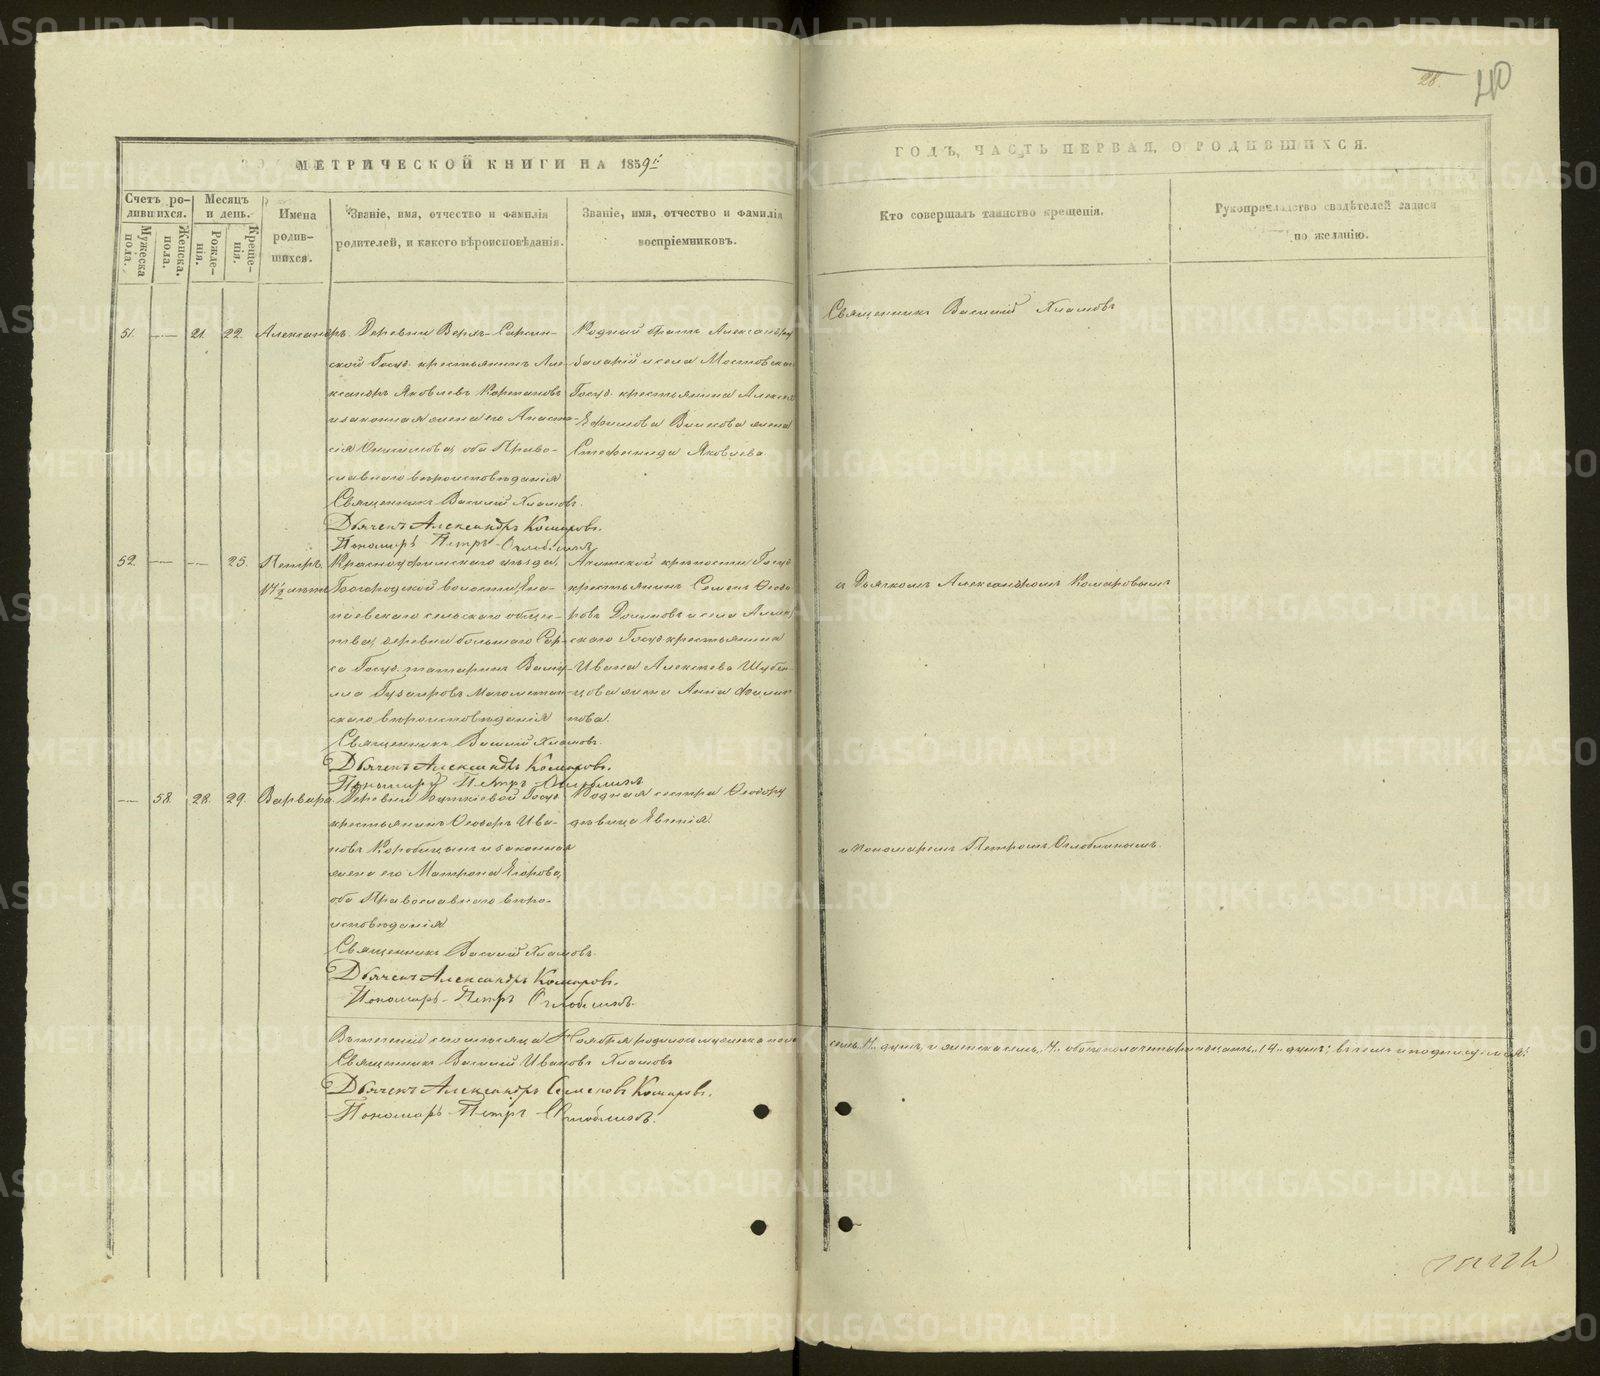 28.
40
МЕТРИЧЕСКОЙ КНИГИ НА 1859й
ГОДЪ, ЧАСТЬ ПЕРВАЯ, О РОДИВШИХСЯ.
Счетъ ро-
дившихся.
Мужеска пола.
Женска. пола.
Месяцъ
и день.
Рожде-
нія.
Креще-
нія.
Имена
родив-
шихся.
Званіе, имя, отчество и фамилія
родителей, и какого вѣроисповѣданія.
Званіе, имя, отчество и фамилія
воспріемниковъ.
Кто совершалъ таинство крещенія.
Рукоприкладство свидѣтелей записи
по желанію.
51. 21. 22. Александръ
Деревни Верхъ-
ской Госуд. крестьянинъ Але-
ксандръ Яковлевъ
и законная жена его Анаста-
сія оба Право-
славнаго вѣроисповѣданія
Священникъ Василій Хламовъ.
Дьячекъ Александръ Комаровъ.
Пономарь Петръ Оглоблинъ
Родный братъ
и села
Госуд. крестьянина Алексѣя
Ефимова жена
Стефанида Яковлева
Священникъ Василій Хламовъ
52. 25. Петръ
17½ лѣтъ
Красноуфимскаго уѣзда,
Богородской волости,
сельскаго общес-
тва, деревни большаго
Госуд. татаринъ
Магометан-
скаго вѣроисповѣданія
Священникъ Василій Хламовъ.
Дьячекъ Александръ Комаровъ.
Пономарь Петръ Оглоблинъ
Ачитской крѣпости Госуд.
крестьянинъ Семенъ Ѳеодо-
ровъ и села
скаго Госуд. крестьянина
Ивана Алексѣева
жена Анна Филип-
пова.
съ Дьячкомъ Александромъ Комаровымъ
58. 28. 29. Варвара
Деревни Госуд.
крестьянинъ Ѳеодоръ Ива-
новъ Коробицынъ и законная
жена его Матрона Егорова,
оба Православнаго вѣро-
исповѣданія
Священникъ Василій Хламовъ.
Дьячекъ Александръ Комаровъ.
Пономарь Петръ Оглоблинъ.
Родная сестра Ѳеодору
дѣвица Евгенія.
и пономаремъ Петромъ Оглоблинымъ.
Въ теченіи сего мѣсяца Ноября родилось мужеска пола семь, 7. душъ, и женска семь, 7. обоего пола четырнадцать, 14. душъ; въ чемъ и подписуемся:
Священникъ Василій Ивановъ Хламовъ
Дьячекъ Александръ Семеновъ Комаровъ.
Пономарь Петръ Оглоблинъ.
METRIKI.GASO-URAL.RU